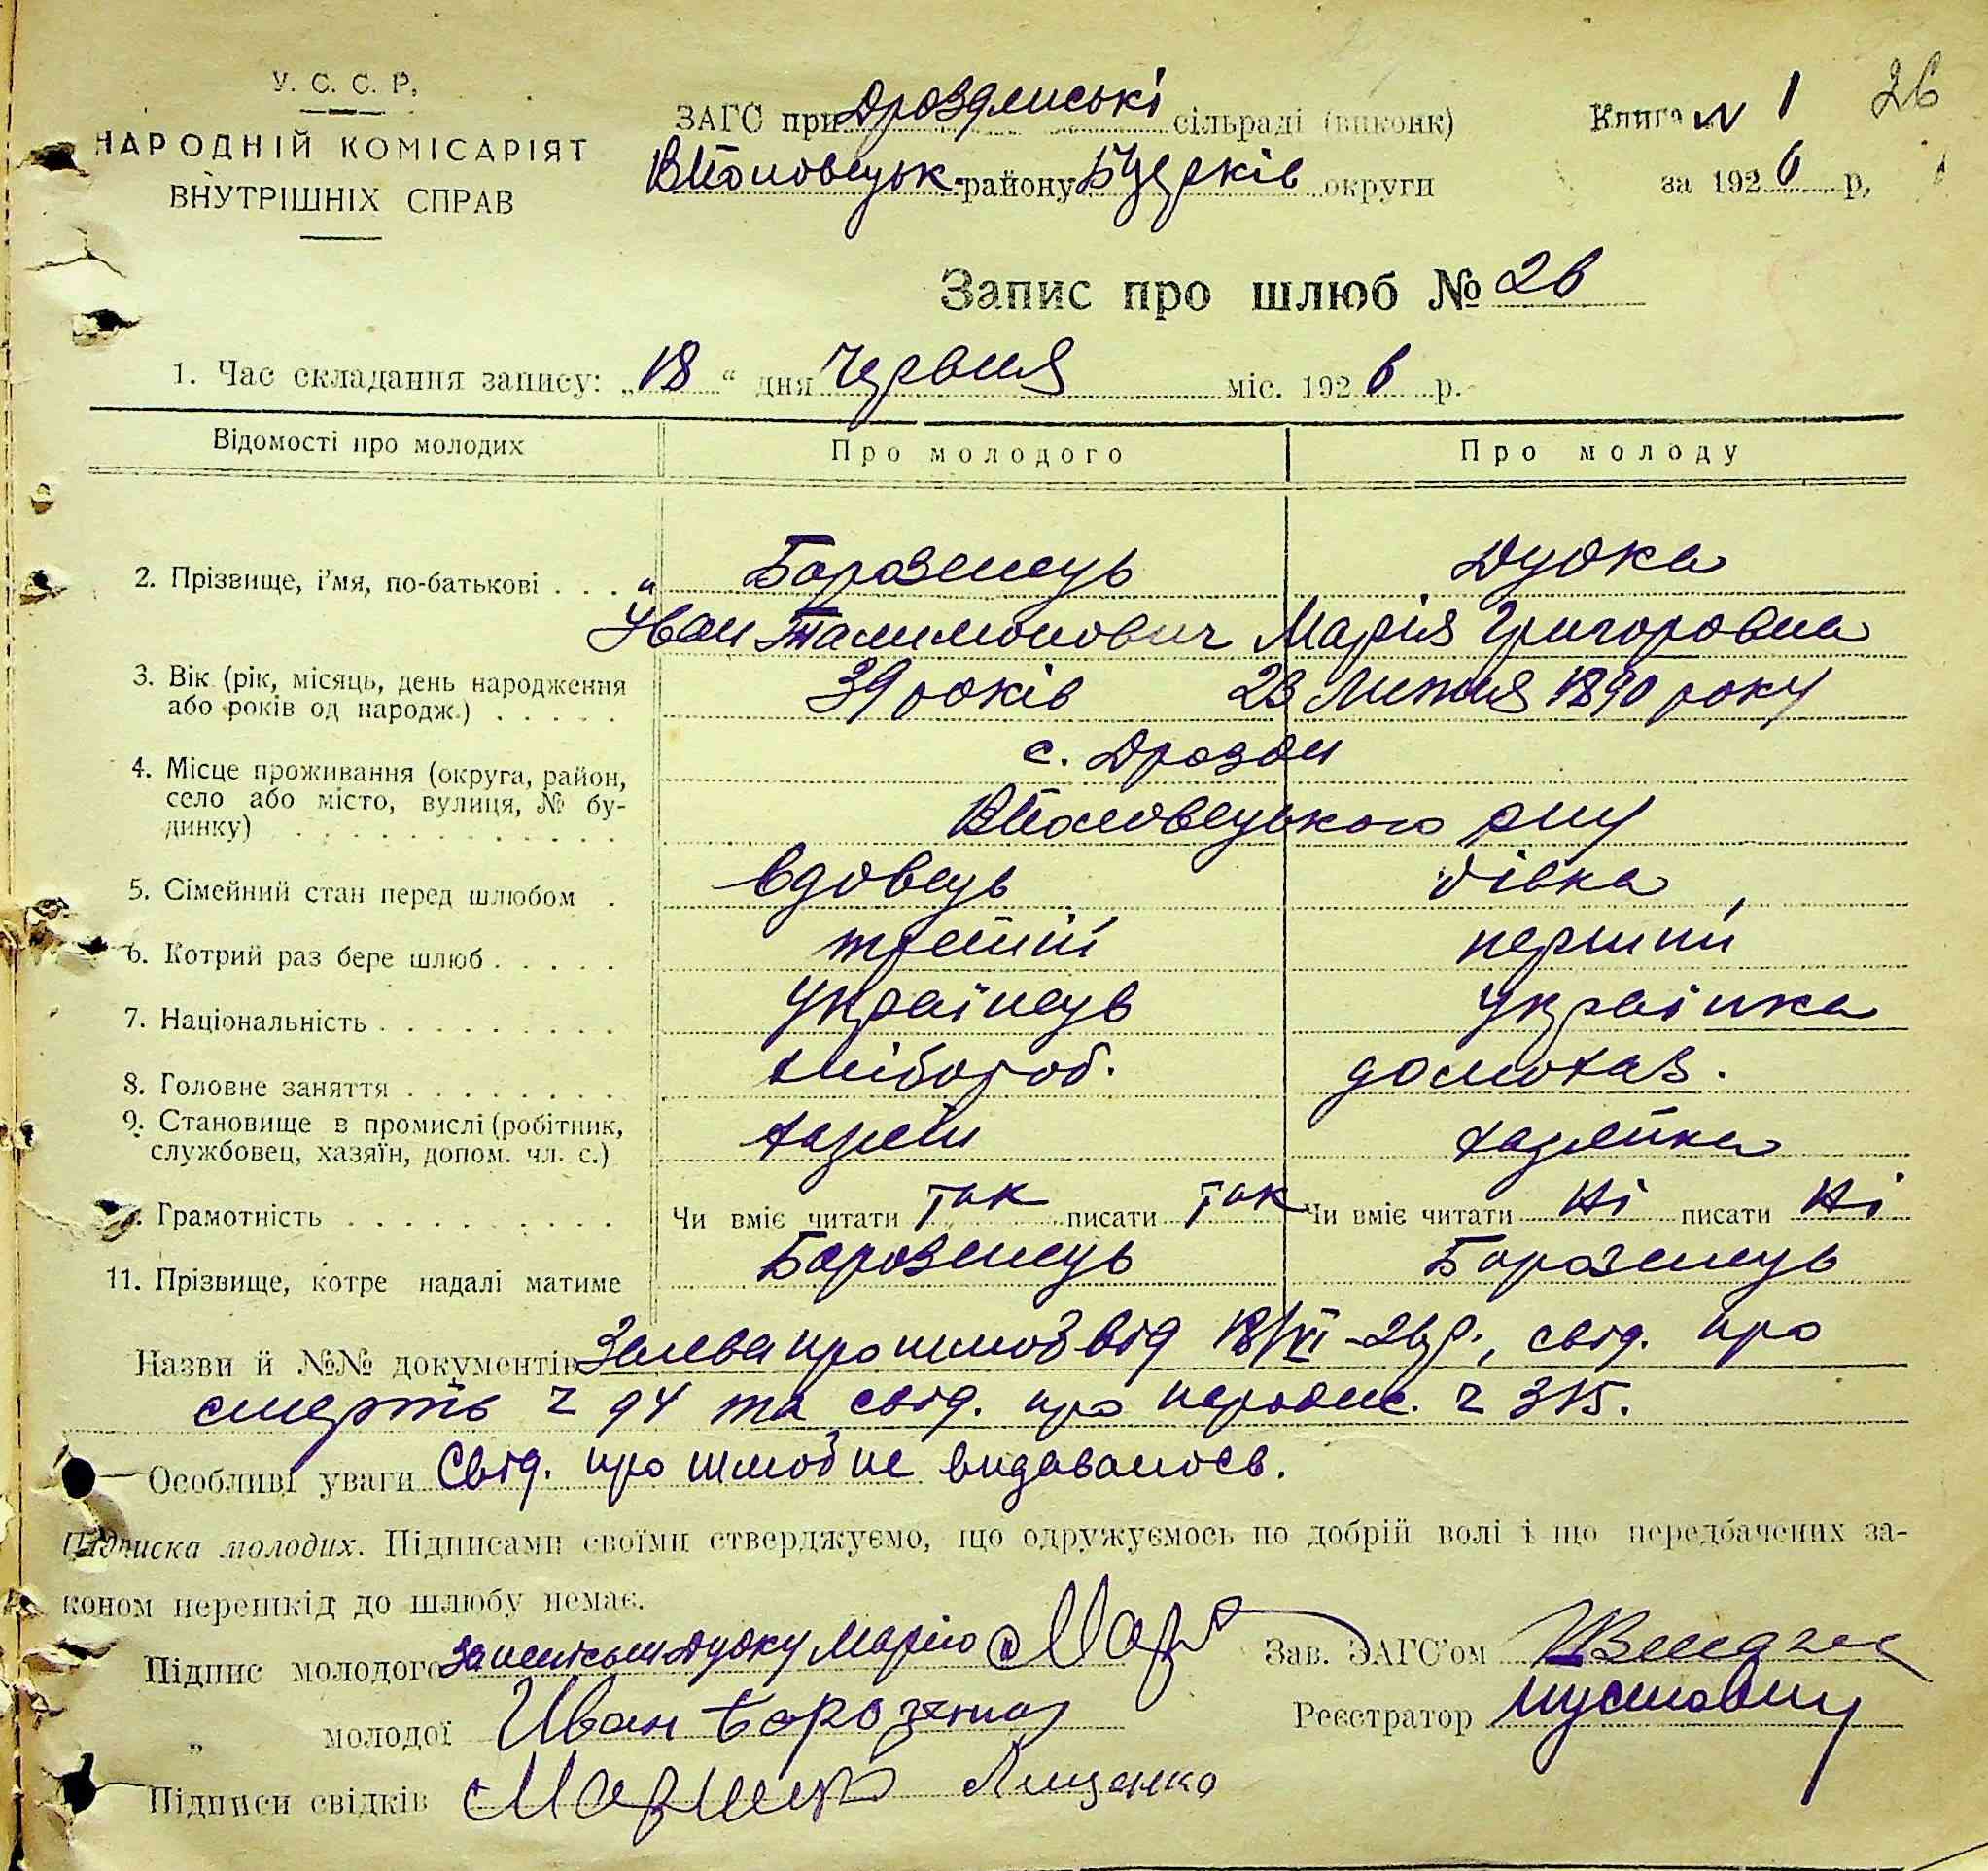 У. С. С. Р.
НАРОДНІЙ КОМІСАРІЯТ
ВНУТРІШНІХ СПРАВ
ЗАГС при сільраді (виконк)
району округи
Книга N 1 26
за 1926 р,
Запис про шлюб № 26
1. Час складання запису: „18“ дня Червня міс. 1926 р.
Відомості про молодих Про молодого Про молоду
2. Прізвище, і'мя, по-батькові . . . Борозенець Дудка
Іван Марія Григоровна
3. Вік (рік, місяць, день народження 39 років 23 Липня 1890 року
або років од народж.) . . . . .
4. Місце проживання (округа, район, с. Дрозди
село або місто, вулиця, № бу-
динку) . . . . . . . . . . . . ВПоловецького рну
5. Сімейний стан перед шлюбом . вдовець дівка
6. Котрий раз бере шлюб . . . . . третій перший
7. Національність . . . . . . . . . Українець Українка
8. Головне заняття . . . . . . . . хлібороб. домохаз.
9. Становище в промислі (робітник, хазяїн хазяйка
службовец, хазяїн, допом. чл. с.)
Грамотність . . . . . . . . . . Чи вміє читати Так писати Так Чи вміє читати Ні писати Ні
11. Прізвище, котре надалі матиме Борозенець Борозенець
Назви й №№ документів Заява про шлюб від 18/VI-26р., свід. про
смерть ч 94 та свід. про народж. ч 315.
Особливі уваги Свід. про шлюб не видавалось.
Підписка молодих. Підписами своїми стверджуємо, що одружуємось по добрій волі і що передбачених за-
коном перешкід до шлюбу немає.
Підпис молодого Дудку Марію Зав. ЗАГС'ом
„ молодої Иван Реєстратор
Підписи свідків Лищенко